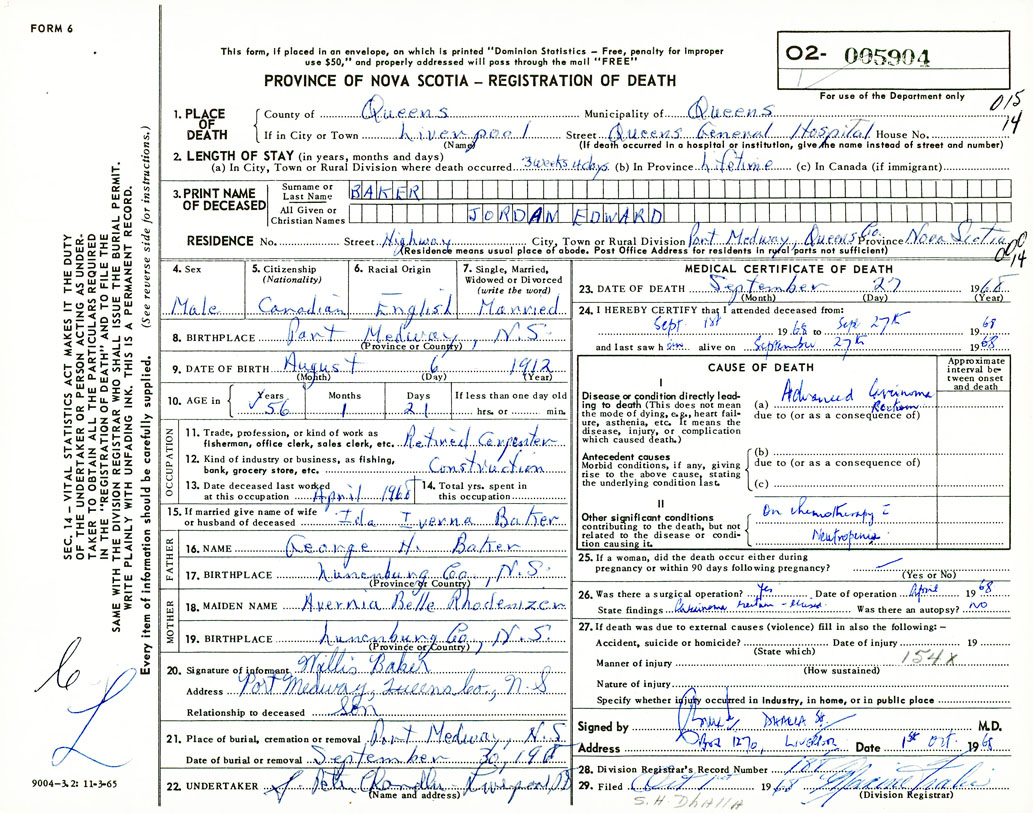 FORM 6
This form, if placed in an envelope, on which is printed "Dominion Statistics – Free, penalty for improper
use $50," and properly addressed will pass through the mail "FREE"
O2- 005904
PROVINCE OF NOVA SCOTIA – REGISTRATION OF DEATH
For use of the Department only
015
14
1. PLACE OF DEATH County of Queens Municipality of Queens
If in City or Town Liverpool Street Queens General Hospital House No.
(Name) (If death occurred in a hospital or institution, give the name instead of street and number)
2. LENGTH OF STAY (in years, months and days)
(a) In City, Town or Rural Division where death occurred 3 weeks 4 days (b) In Province Lifetime (c) In Canada (if immigrant)
3. PRINT NAME OF DECEASED Surname or Last Name BAKER
All Given or Christian Names JORDAN EDWARD
RESIDENCE No. Street Highway City, Town or Rural Division Port Medway, Queens Co. Province Nova Scotia
(Residence means usual place of abode. Post Office Address for residents in rural parts not sufficient)
000
14
4. Sex Male
5. Citizenship (Nationality) Canadian
6. Racial Origin English
7. Single, Married, Widowed or Divorced (write the word) Married
8. BIRTHPLACE Port Medway, N.S.
(Province or Country)
9. DATE OF BIRTH August 6 1912
(Month) (Day) (Year)
10. AGE in Years 56 Months 1 Days 21 If less than one day old hrs. or min.
OCCUPATION
11. Trade, profession, or kind of work as fisherman, office clerk, sales clerk, etc. Retired Carpenter
12. Kind of industry or business, as fishing, bank, grocery store, etc. Construction
13. Date deceased last worked at this occupation April 1968 14. Total yrs. spent in this occupation
15. If married give name of wife or husband of deceased Ida Iverna Baker
FATHER
16. NAME George H. Baker
17. BIRTHPLACE Lunenburg Co., N.S.
(Province or Country)
MOTHER
18. MAIDEN NAME Avernia Belle Rhodenizer
19. BIRTHPLACE Lunenburg Co., N.S.
(Province or Country)
20. Signature of informant Willis Baker
Address Port Medway, Queens Co., N.S
Relationship to deceased Son
21. Place of burial, cremation or removal Port Medway, N.S.
Date of burial or removal September 30, 1968
22. UNDERTAKER Chandler Liverpool
(Name and address)
MEDICAL CERTIFICATE OF DEATH
23. DATE OF DEATH September 27 1968
(Month) (Day) (Year)
24. I HEREBY CERTIFY that I attended deceased from:
Sept 1st 1968 to Sept 27th 1968
and last saw him alive on September 27th 1968
CAUSE OF DEATH
Approximate interval between onset and death
I
Disease or condition directly leading to death (This does not mean the mode of dying, e.g., heart failure, asthenia, etc. It means the disease, injury, or complication which caused death.)
(a) Advanced Carcinoma Rectum
due to (or as a consequence of)
Antecedent causes
Morbid conditions, if any, giving rise to the above cause, stating the underlying condition last.
(b)
due to (or as a consequence of)
(c)
II
Other significant conditions contributing to the death, but not related to the disease or condition causing it.
On chemotherapy c
Neutropenia
25. If a woman, did the death occur either during pregnancy or within 90 days following pregnancy?
(Yes or No)
26. Was there a surgical operation? Yes Date of operation April 1968
State findings Carcinoma rectum Was there an autopsy? NO
27. If death was due to external causes (violence) fill in also the following: –
Accident, suicide or homicide? Date of injury 19
(State which)
Manner of injury 154X
(How sustained)
Nature of injury
Specify whether injury occurred in industry, in home, or in public place
Signed by DHALLA M.D.
Address Box 1270, Liverpool Date 1st Oct. 1968
28. Division Registrar's Record Number 188
29. Filed Oct 1st 1968
(Division Registrar)
S.H. DHALLA
SEC. 14 – VITAL STATISTICS ACT MAKES IT THE DUTY
OF THE UNDERTAKER OR PERSON ACTING AS UNDER-
TAKER TO OBTAIN ALL THE PARTICULARS REQUIRED
IN THE "REGISTRATION OF DEATH" AND TO FILE THE
SAME WITH THE DIVISION REGISTRAR WHO SHALL ISSUE THE BURIAL PERMIT.
WRITE PLAINLY WITH UNFADING INK. THIS IS A PERMANENT RECORD.
Every item of information should be carefully supplied. (See reverse side for instructions.)
9004–3.2: 11-3-65